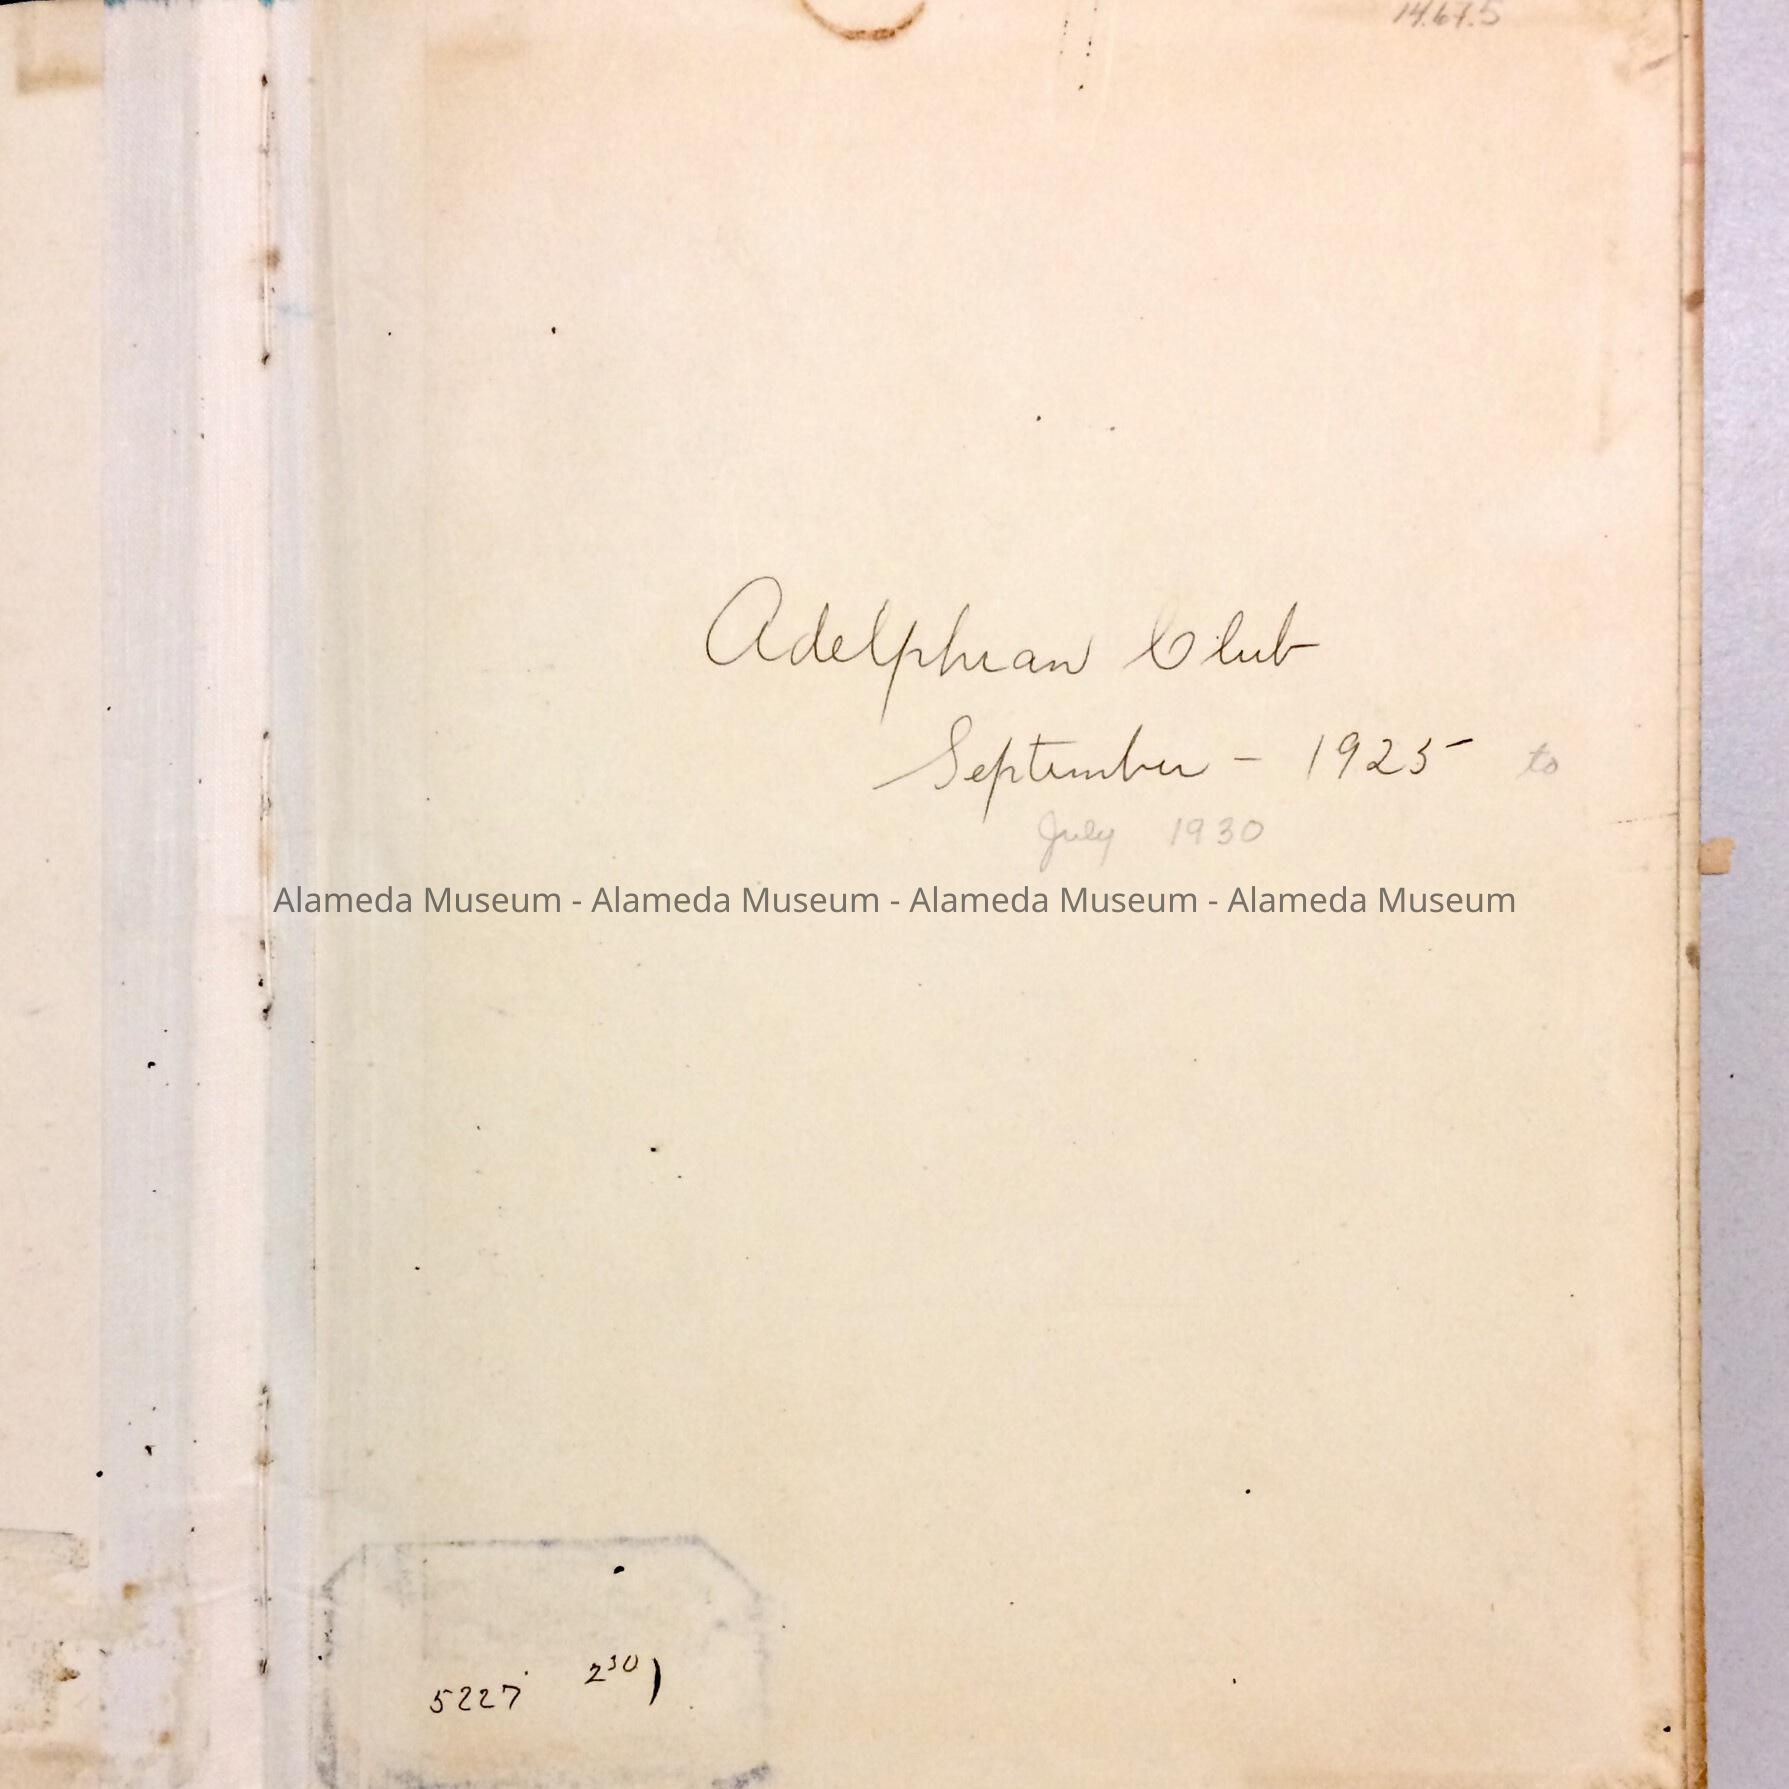 14.67.5
Adelphian Club
September - 1925 to
July 1930
Alameda Museum - Alameda Museum - Alameda Museum - Alameda Museum
5227 2 30 )